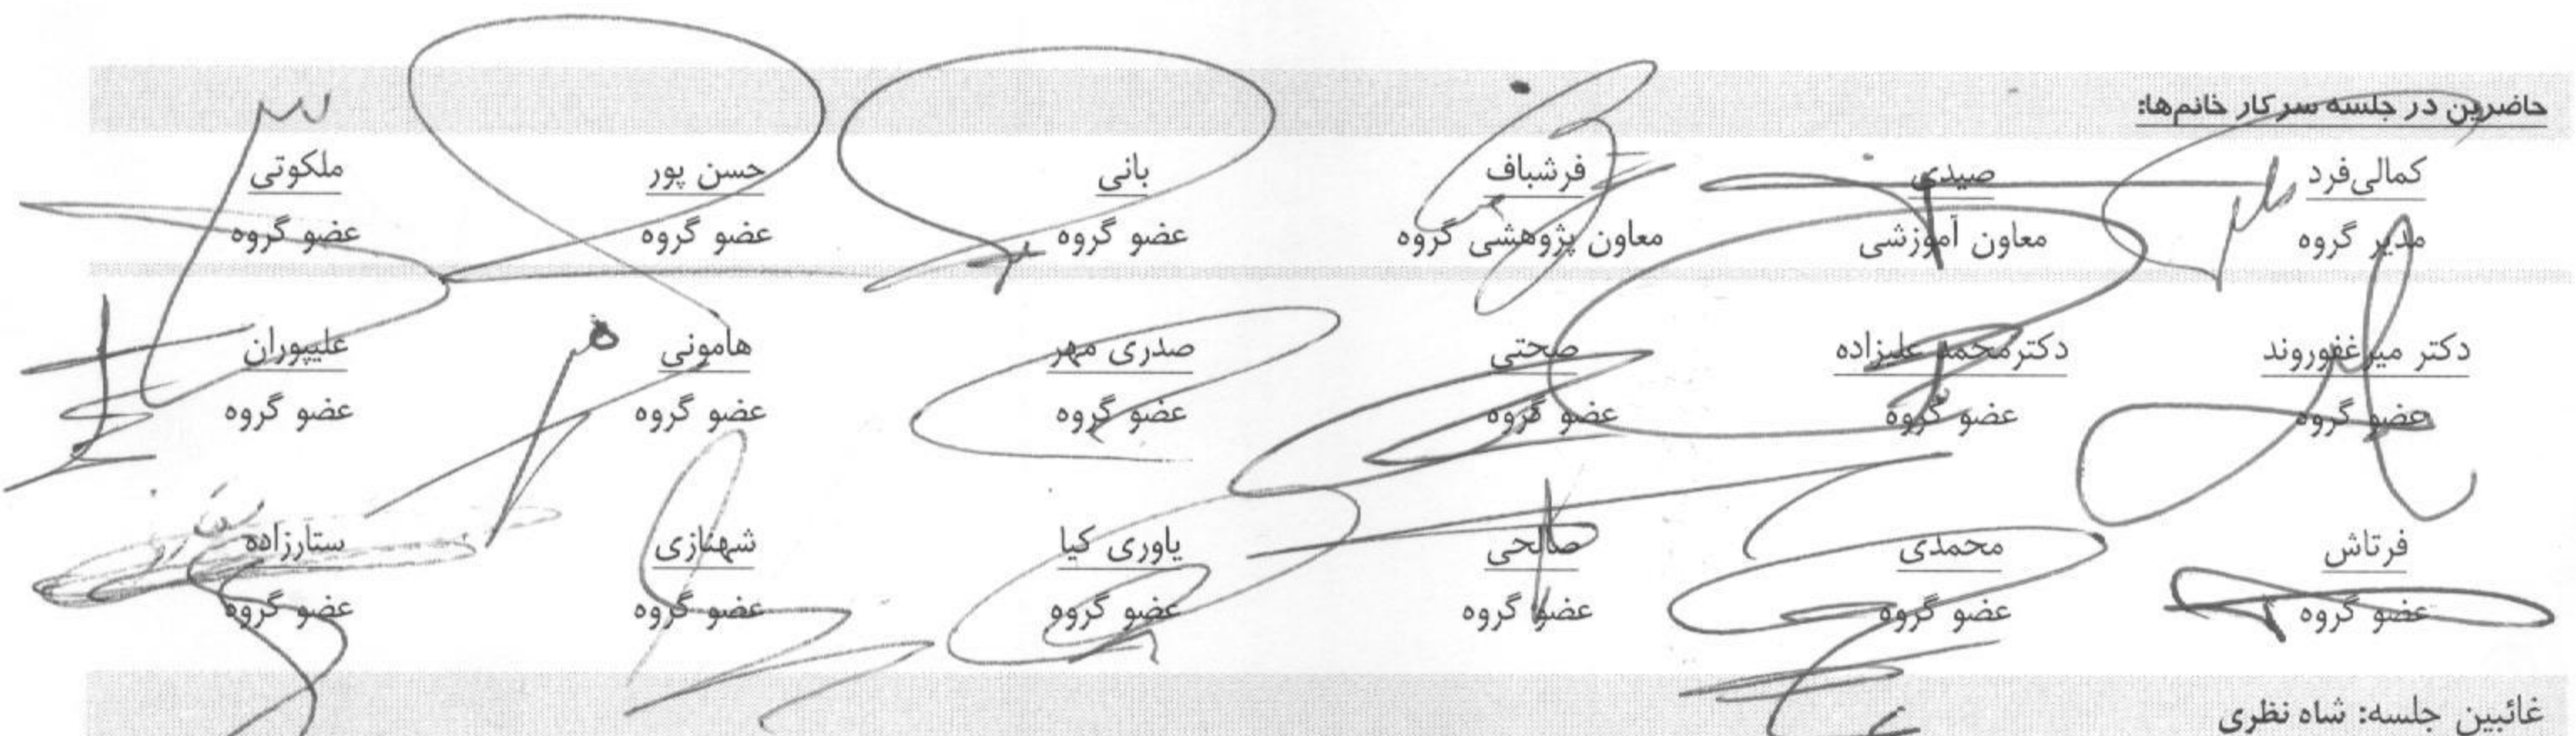 حاضرین در جلسه سرکار خانم‌ها:
کمالی‌فرد صیدی فرشباف بانی حسن پور ملکوتی
مدیر گروه معاون آموزشی معاون پژوهشی گروه عضو گروه عضو گروه عضو گروه
دکتر میرغفوروند دکترمحمد علیزاده صحتی صدری مهر هامونی علیپوران
عضو گروه عضو گروه عضو گروه عضو گروه عضو گروه عضو گروه
فرتاش محمدی صالحی یاوری کیا شهنازی ستارزاده
عضو گروه عضو گروه عضو گروه عضو گروه عضو گروه عضو گروه
غائبین جلسه: شاه نظری